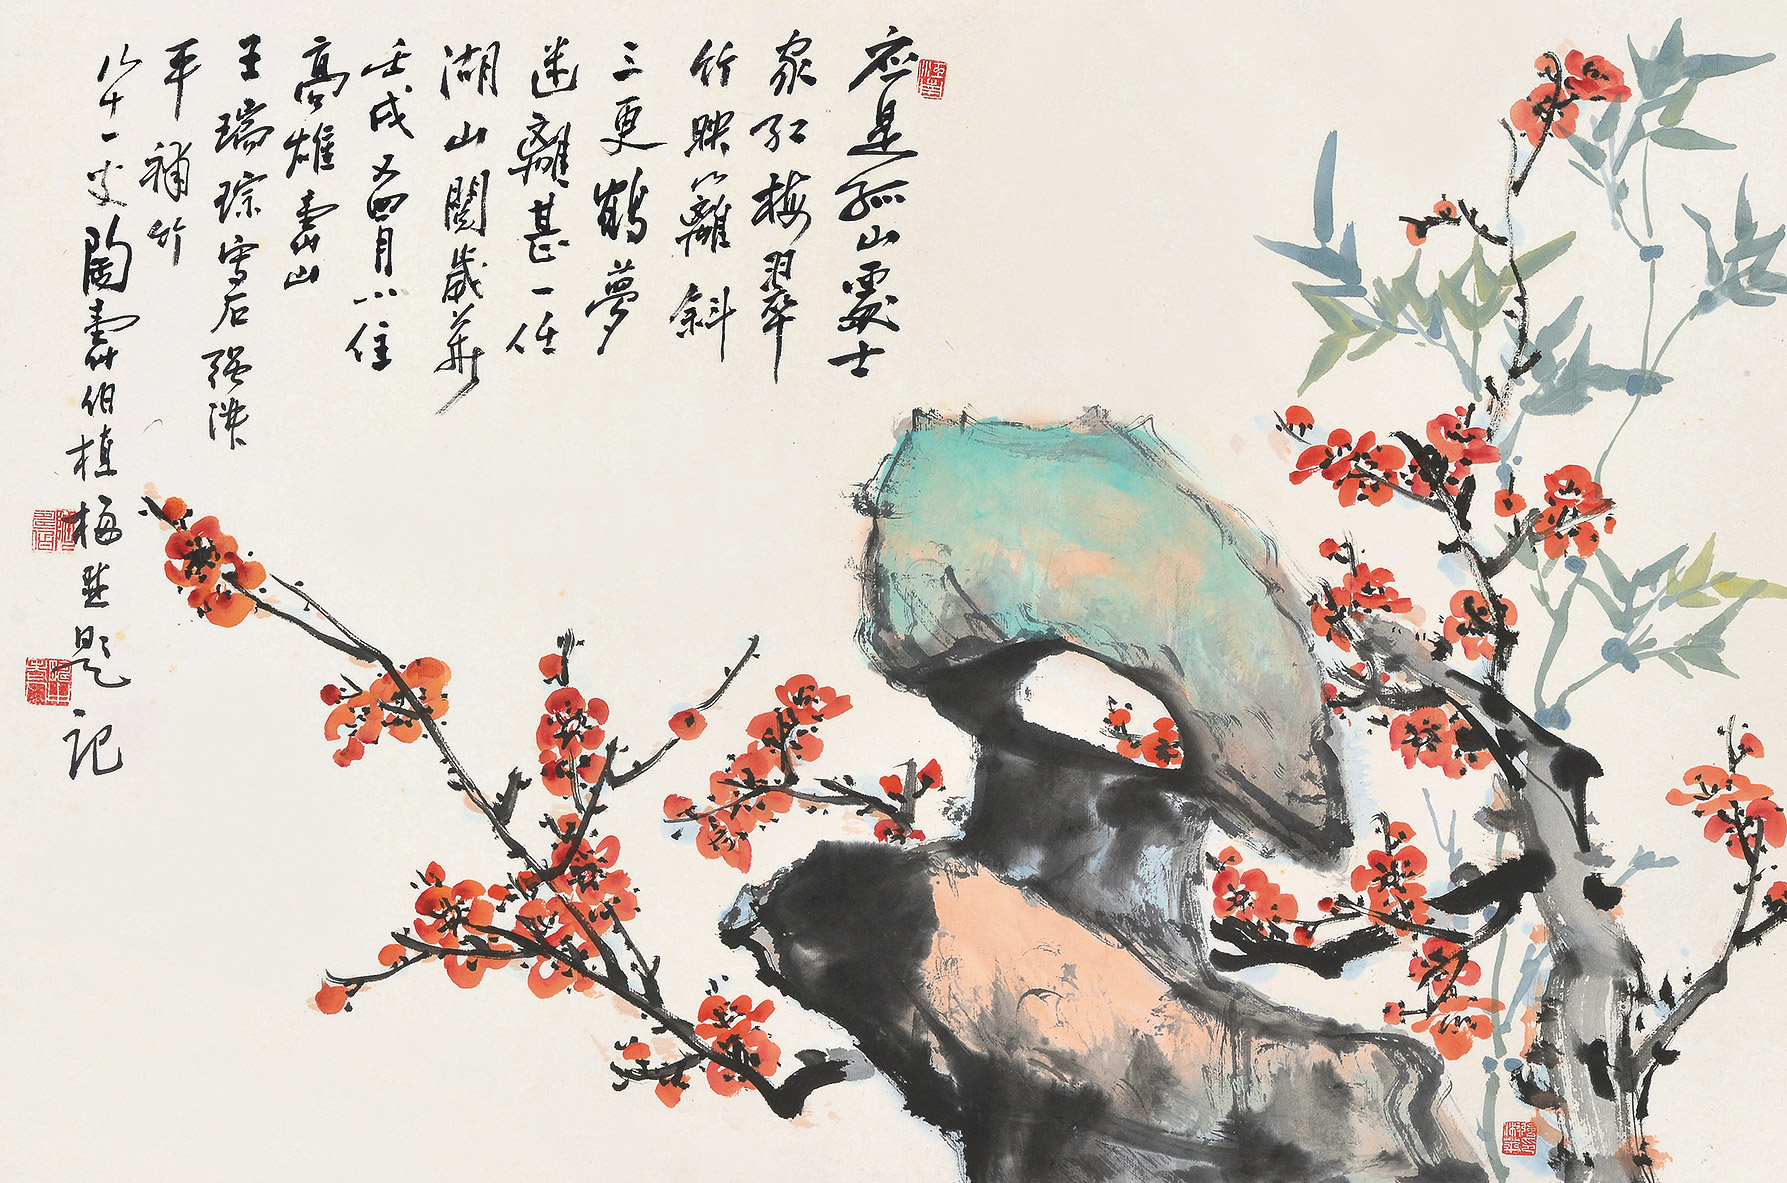 應是孤山處士
家紅梅翠
竹映籬斜
三更鶴夢
迷離甚一任
湖山閱歲華
壬戌又四月小住
高雄壽山
王瑞琮寫石張
平補竹
八十一叟陶壽伯植梅並題記